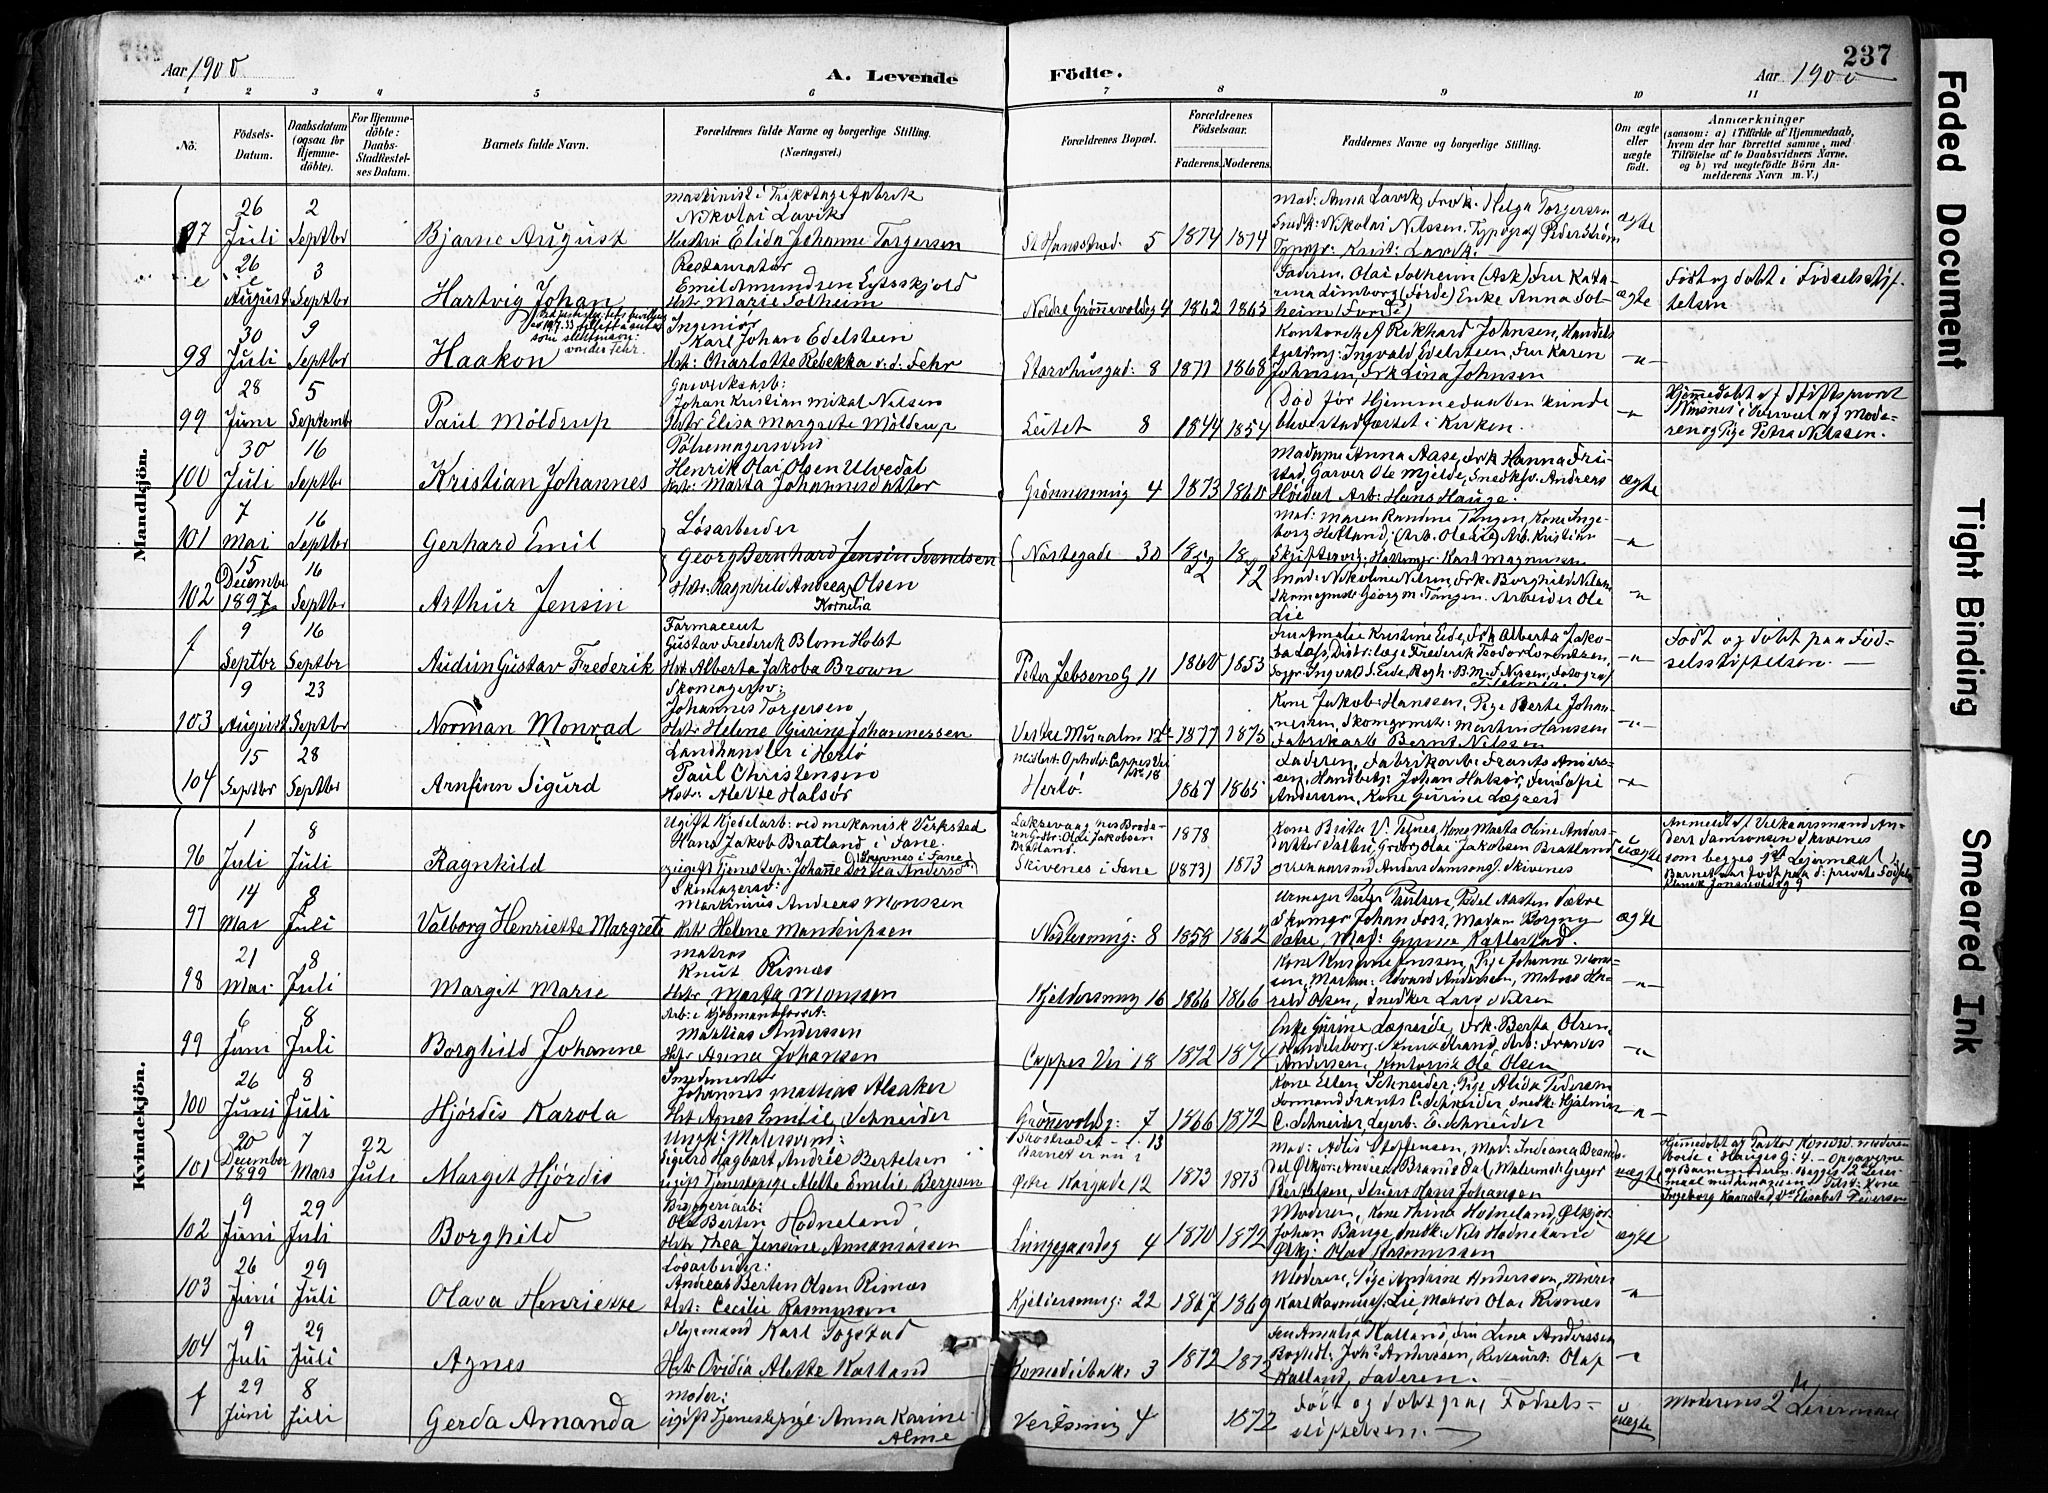 237
Aar 1900
A. Levende
Födte.
Aar 1900
1 2 3 4 5 6 7 8 9 10 11
No.
Födsels-
Datum.
Daabsdatum
(ogsaa for
Hjemme-
döbte).
For Hjemme-
döbte:
Daabs-
Stadfæstel-
ses Datum.
Barnets fulde Navn.
Forældrenes fulde Navne og borgerlige Stilling.
(Næringsvei.)
Forældrenes Bopæl.
Forældrenes
Födselsaar.
Faderens.
Moderens.
Faddernes Navne og borgerlige Stilling.
Om ægte
eller
uægte
födt.
Anmærkninger
(saasom: a) i Tilfælde af Hjemmedaab,
hvem der har forrettet samme, med
Tilföielse af to Daabsvidners Navne.
og b) ved uægtefödte Börn An-
melderens Navn m. V.)
Mandkjön.
97
26
Juli
2
Septbr
Bjarne August
Maskinist i Trikotagefabrik
Nikolai Lavik
Hustru Elida Johanne Torgersen
St Hansstræd. 5
1874 1874
Mad: Anna Lavik, Frøk. Helga Torgersen
Snedk: Nikolai Nilssen. Typograf Peder Strøm
Typogr: Krist: Lavik.
ægte
26
August
3
Septbr
Hartvig Johan
Restauratør
Emil Amundsen Lysskjold
Hstr. Marie Solheim
Nordre Grønnevoldsg 4
1862 1863
Faderen, Olai Solheim (Ask) Fru Kata-
rina Limborg (Førde) Enke Anna Sol-
heim (Førde)
ægte
Født og døbt i Fødselsstif-
telsen
98
30
Juli
9
Septbr
Haakon
som slektsnavn:
von der Fehr.
Ingeniør
Karl Johan Edelsteen
Hst: Charlotte Rebekka v. d. Fehr
Starvhusgad: 8
1871 1868
Kontorch. Rikhard Johnsen, Handels
Ingvald Edelsteen, Fru Karen
Johnsen, Frk Lina Johnsen
-"-
99
28
Juni
5
Septembr
Paul Möldrup
Gasværksarb:
Johan Kristian Mikal Nilsen
Hstr Elisa Margrete Möldrup
Leitet 8
1844 1854
Død før Hjemmedaaben kunde
blive stadfæstet i Kirken.
-"-
Hjemmedøbt af Stiftsprovst
af Mode-
ren og Pige Petra Nilssen.
100
30
Juli
16
Septbr
Kristian Johannes
Pølsemagersvend
Henrik Olai Olsen Ulvedal
Hstr: Marta Johannesdatter
Grønnesmug 4
1873 1860
Madame Anna Aase, Frk Hanna Fri-
stad, Garver Ole Mjelde, Snedksv. Anders
Høidal Arb: Hans Hauge.
ægte
101
7
Mai
16
Septbr
Gerhard Emil
Løsarbeider
Georg Bernhard Jensin Svendsen
Nøstegade 30
1852 1872
Mad: Maren Randine Tangen, Kone Inge-
borg Hetland, Arb. Ole Lie, Arb. Kristian
Karl Magnussen
-"-
102
15
December
1897
16
Septbr
Arthur Jensin
Hstr: Ragnhild Andrea Olsen
Kornelia
Mad: Nikoline Nilsen, Frk. Borghild Nilsen
Skomagmstr Georg M. Tangen. Arbeider Ole
Lie
-"-
f
9
Septbr
16
Septbr
Audun Gustav Frederik
Farmaceut
Gustav Frederik Blom Holst
Hstr. Alberta Jakoba Brown
Peter Jebsensg 11
1860 1853
Fru Amalie Kristine Eide, Frk Alberta Jako-
ba Lofs, Distr: læge Frederik Teodor Lorentzen,
Ingvald Eide, Bogh. B. M. F. Nilssen, Fotograf
-"-
Født og døbt paa Fød-
selsstiftelsen.
103
9
August
23
Septbr
Norman Monrad
Skomagersv:
Johannes Torgersen
Hstr Helene Gurine Johannessen
Vestre Muralm 12
1877 1875
Kone Jakob: Hanssen, Pige Berte Johan-
nessen, Skomgrmstr: Martin Hanssen
Fabrikarb Bernt Nilssen
-"-
104
15
Septbr
28
Septbr
Arnfinn Sigurd
Landhandler i Herlø
Paul Christensen
Hstr. Alette Halsør
Midlert. Ophold: Cappes Vei
No 18
Herlø.
1867 1865
Faderen, Fabrikarb: Frants Anders-
sen, Handbetj: Johan Halsør, Fru Sofie
Anderssen, Kone Gurine Lægreid
-"-
Kvindekjön.
96
1
Juli
8
Juli
Ragnhild
Ugift Kjedelarb: ved mekanisk Verksted
Hans Jakob Bratland i Fane.
ugift Tjenestep: Johanne Dortea Andersd
Skivenes i Fane
Laksevaag hos Brode-
ren Olai Jakobsen
Bratland.
Skivenes i Fane
1878
(1873) 1873
Kone Brita V. Teines, Kone Marta Oline Anders-
datter Olai Jakobsen Bratland
Anders Samsons. Skivenes
uægte
Anmeldt af Vilkaarsmand An-
ders Samsonsen Skivenes
som begges 1ste Leiermaal
Barnet var født paa d: private Fødsels
97
14
Mai
8
Juli
Valborg Henriette Margrete
Skomagerad:
Martinius Andreas Monssen
Hstr Helene Mandrupsen
Nøstesmug: 8
1858 1862
Urmager Peder Paulsen,
Skomgr Johan Foss, Madam Borgny
Sætre, Mad: Gurine Kaflestad.
ægte
98
21
Mai
8
Juli
Margit Marie
Matros
Knut Risnæs
Hstr Marta Monssen
Kjeldersmug 16
1866 1866
Jenssen, Pige Johanne Mons-
sen, Edvard Anderssen, Matros Ha-
rald Olsen, Snedker Lars Nilsen
-"-
99
6
Juni
8
Juli
Borghild Johanne
Arb: i Kjøbmandsforret:
Mathias Anderssen
Hstr Anna Johansen
Cappes Vei 18
1872 1874
Enke Gurine Lægreide, Frk. Berta Olsen,
Handelsborg. Strand, Arb: Frants
Andersen, Kontorist Ole Olsen
-"-
100
26
Juni
8
Juli
Hjördis Karola
Smedemester
Johannes Mathias Alsaker
Hst Agnes Emilie Schneider
Grønnevoldsg: 7
1866 1872
Kone Ellen Schneider. Pige Alida Pedersen
Formand Frants C. Schneider Snedk: Hjalmar
C. Schneider, Løserb. E. Schneider
-"-
101
20
December
1899
7
Mars
22
Juli
Margit Hjördis
Ungk: Malersvend:
Sigurd Hagbart Andrée Bertelsen
ugift Tjenestepige Alette Emilie Bergesen
Barnet er nu i
Østre Korgade 12
1873 1873
Mad: Adlis Steffensen, Mad: Indiana Brands-
dal Ølkjør: Andreas Brandsdal, Malermstr Greger
Bertelsen, Stuert Hans Johansen
uægte
Hjemmedøbt af Pastor Konow. Moderen
boede i Hauges G: 4. Opgaverne
af Barnemoderen. Begges 2 Leier-
maal med hinanden. Test: Kone
Ingeborg Kaarstad, do Elisabet Pedersen
102
9
Juni
29
Juli
Borghild
Bryggeriarb:
Ole Berten Hodneland
Hstr Thea Jensine Annaniassen
Lungegaardsg 4
1870 1872
Moderen, Kone Trina Hodneland, Ølkjør
Johan Bange, Snedk: Nils Hodneland
Ølkj: Olai Rasmussen
ægte
103
26
Juni
29
Juli
Olava Henriette
Løsarbeider:
Andreas Berten Olsen Risnæs
Hst: Cecilie Rasmussen
Kjeldersmug: 22
1867 1869
Moderen, Pige Andrine Anderssen, Murer
Karl Rasmuss: Lie, Matros Olai Risnæs
-"-
104
9
Juli
29
Juli
Agnes
Styrmand Karl Fogstad
Hstr Ovidia Alette Kalland
Komediebak: 3
1872 1872
Fru Amalia Kalland, Fru Lina Anderssen
Boghdl: Johs Anderssen, Restaurt: Olaf
Kalland, Faderen.
-"-
f
29
Juni
8
Juli
Gerda Amanda
Moder:
ugift Tjenestepige Anna Karine
Alme
4
1872
Født og døbt paa Fødsels-
stiftelsen.
uægte
Moderens 2det Leiermaal
Faded Document
Tight Binding
Smeared Ink